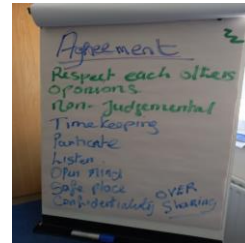 Agreement
Respect each others
opinions
Non-Judgemental
Timekeeping
Participate
Listen
Open Mind
Safe place
Confidentiality OVER Sharing